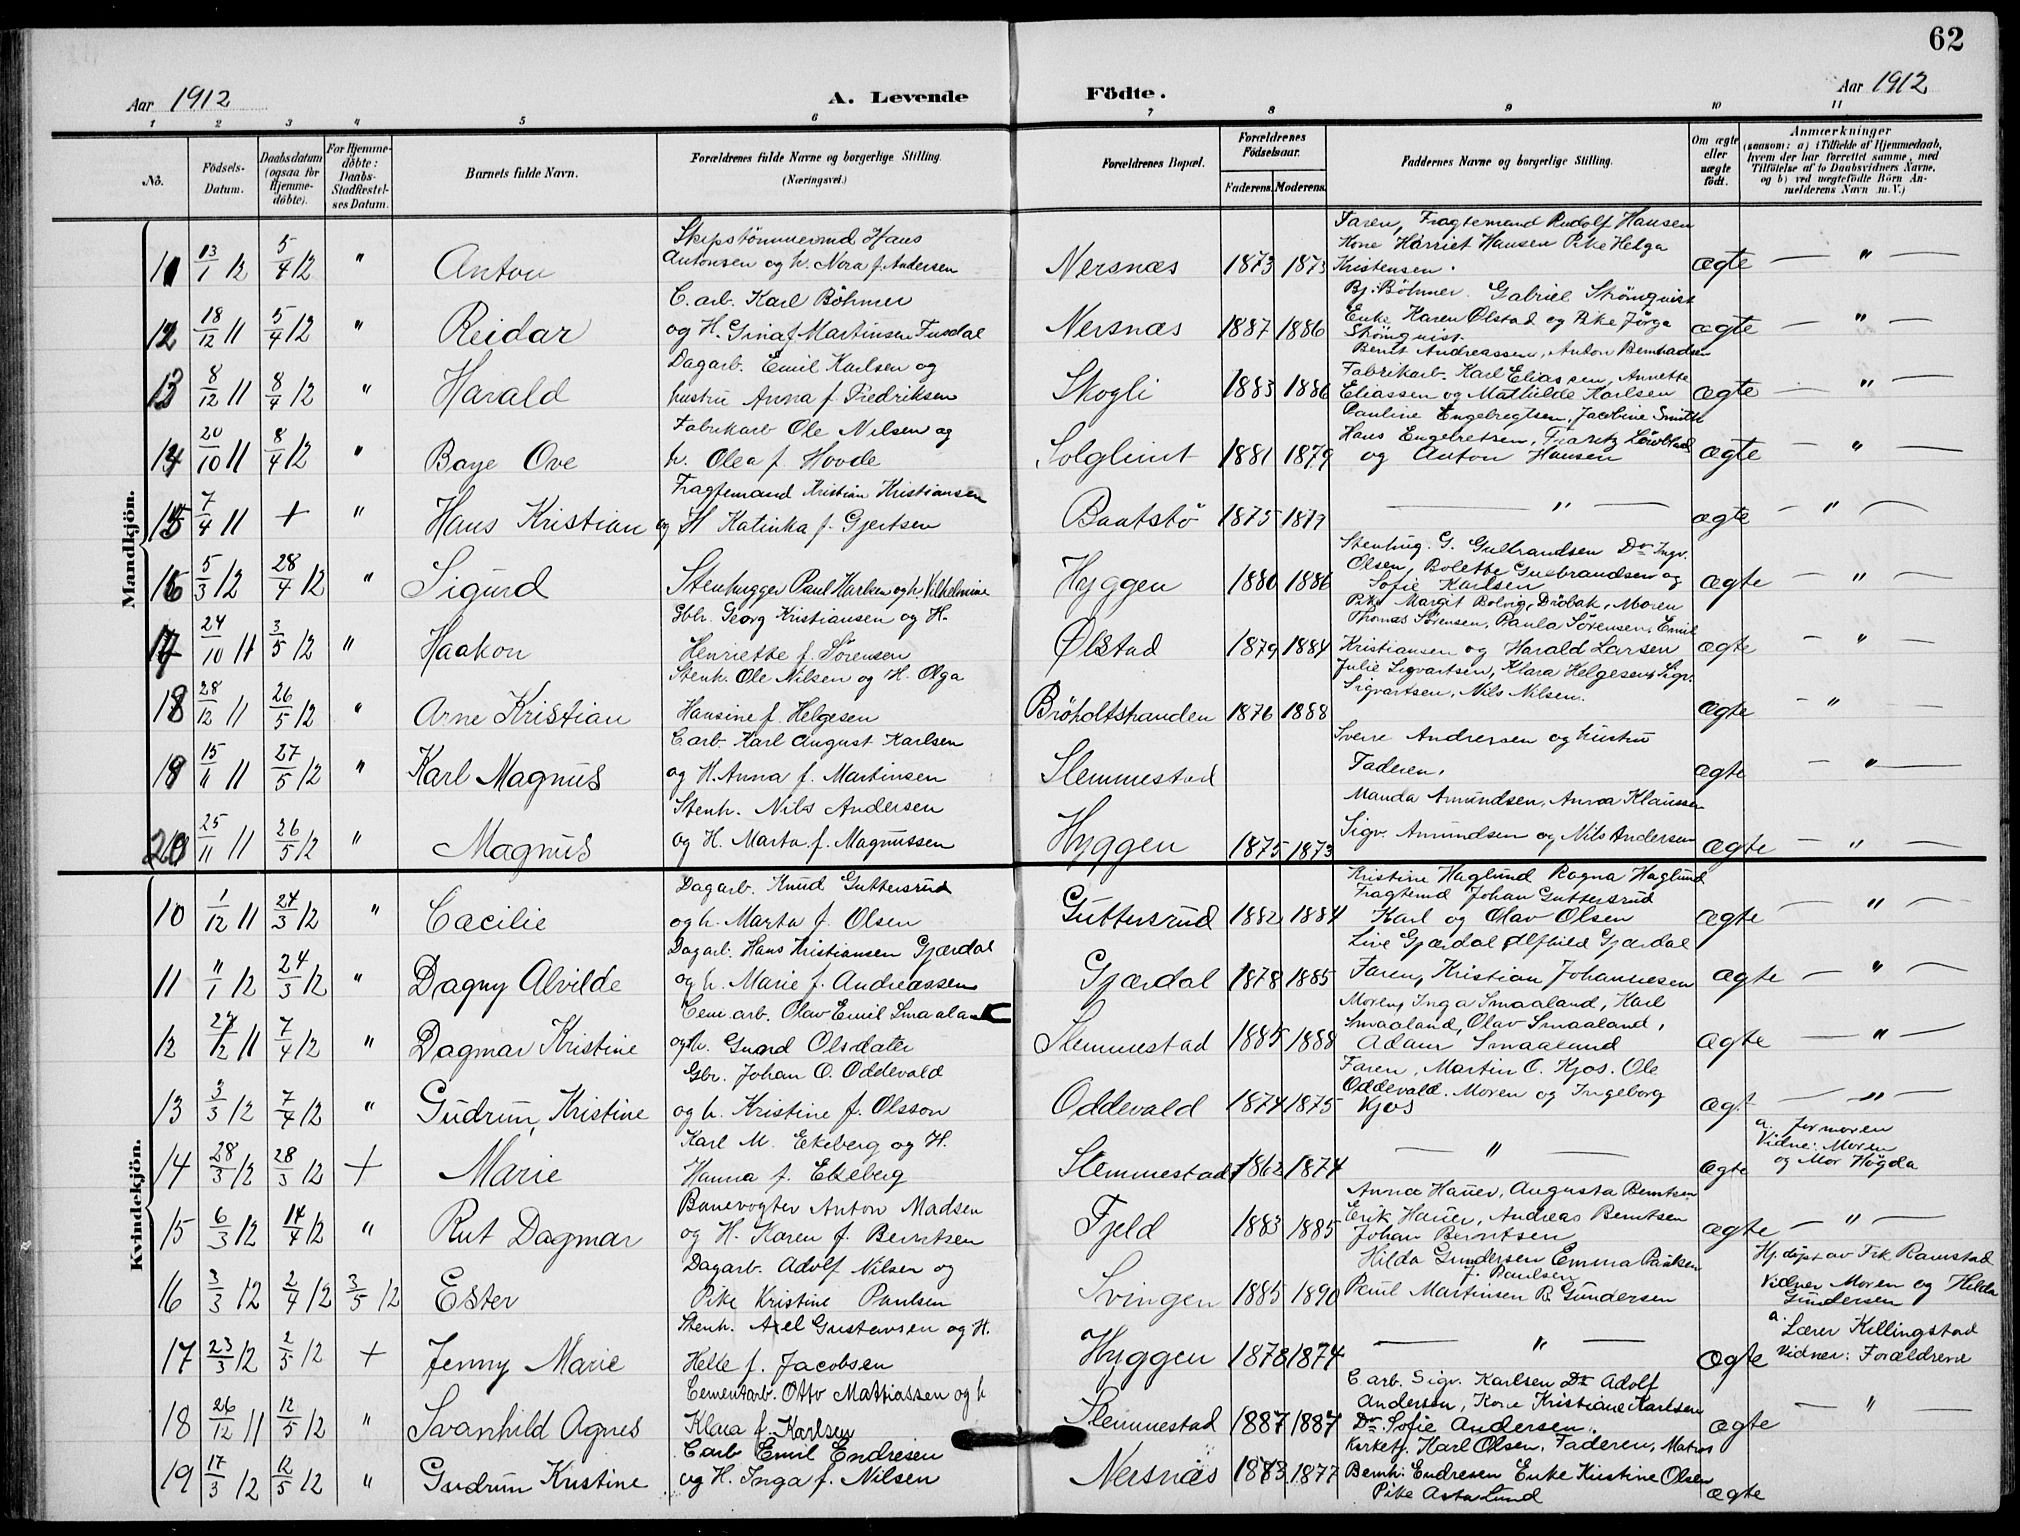 62
Aar 1912
A. Levende
Födte.
Aar 1912
1 2 3 4 5 6 7 8 9 10 11
No.
Födsels-Datum.
Daabsdatum (ogsaa for Hjemme-döbte).
For Hjemme-döbte: Daabs-Stadfæstel-ses Datum.
Barnets fulde Navn.
Forældrenes fulde Navne og borgerlige Stilling. (Næringsvei.)
Forældrenes Bopæl.
Forældrenes Födselsaar.
Faderens. Moderens.
Faddernes Navne og borgerlige Stilling.
Om ægte eller uægte født.
Anmærkninger (saasom: a) i Tilfælde af Hjemmedaab, hvem der har forrettet samme, med Tilföielse af to Daabsvidners Navne, og b) ved uægtefödte Börn Anmelderens Navn m. V.)
Mandkjön.
11 13/1 12 5/4 12 " Anton Skipstömmermd Hans Antonsen og h. Nora f. Andersen Nersnæs 1873 1873 Faren, Fragtemand Rudolf Hansen Kone Harriet Hansen Pike Helga Kristensen. ægte — " —
12 18/12 11 5/4 12 " Reidar C. arb. Karl Böhmer og H. Gina f Martinsen Fusdal Nersnæs 1887 1886 Bj. Böhmer. Gabriel Strömquist Enke Karen Ølstad og Pike Jörga Strömquist. ægte — " —
13 8/12 11 8/4 12 " Harald Dagarb. Emil Karlsen og hustru Anna f. Fredriksen Skogli 1883 1886 Bernt Andreassen, Anton Bernhadsen Fabrikarb. Karl Eliassen, Annette Eliassen og Mathilde Karlsen ægte — " —
14 20/10 11 8/4 12 " Baye Ove Fabrikarb Ole Nilsen og h. Olea f. Hovde Solglimt 1881 1879 Pauline Engebregtsen, Jacobine Smitth Hans Engebretsen, Lövblad og Anton Hansen ægte — " —
15 7/4 11 + " Hans Kristian Fragtemand Kristian Kristiansen og H Katinka f. Gjertsen Baatstö 1875 1877 — " — ægte — " —
16 5/3 12 28/4 12 " Sigurd Stenhugger Paul Karlsen og h. Vilhelmine Hyggen 1880 1886 Stenhug. G. Gulbrandsen Do Ingv. Olsen, Bolette Gulbrandsen og Sofie Karlsen ægte — " —
17 24/10 11 3/5 12 " Haakon Gbr. Georg Kristiansen og H. Henriette f. Sörensen Ølstad 1879 1884 Pike Margit Bolvig, Dröbak, Moren Thomas Sörensen, Paula Sörensen, Emil Kristiansen og Harald Larsen ægte — " —
18 28/12 11 26/5 12 " Arne Kristian Stenh. Ole Nilsen og H. Olga Hansine f. Helgesen Bröholtstranden 1876 1888 Julie Sigvartsen, Klara Helgesen, Sigv. Sigvartsen, Nils Nilsen. ægte — " —
19 15/11 11 27/5 12 " Karl Magnus C. arb. Karl August Karlsen og H. Anna f. Martinsen Slemmestad Sverre Andresen og hustru Faderen. ægte — " —
20 25/11 11 26/5 12 " Magnus Stenh. Nils Andersen og H. Marta f. Magnussen Hyggen 1875 1873 Manda Amundsen, Anna Klaussen Sigv. Amundsen og Nils Andersen ægte — " —
Kvindekjön.
10 1/12 11 24/3 12 " Cæcilie Dagarb. Knud Guttersrud og h. Marta f. Olsen Guttersrud 1882 1884 Kristine Haglund Ragna Haglund Fragtemd Johan Guttersrud Karl og Olav Olsen ægte — " —
11 11/1 12 24/3 12 " Dagny Alvilde Dagarb. Hans Kristiansen Gjærdal og h. Marie f. Andreassen Gjærdal 1878 1885 Live Gjærdal Alfhild Gjærdal Faren, Kristian Johannesen ægte — " —
12 27/12 11 7/4 12 " Dagmar Kristine Cem. arb. Olav Emil Smaaland og h. Gund Olsdater Slemmestad 1885 1888 Moren, Inga Smaaland, Karl Smaaland, Olav Smaaland, Adam Smaaland ægte — " —
13 3/3 12 7/4 12 " Gudrun, Kristine Gbr. Johan O. Oddevald og h. Kristine f. Olsson Oddevald 1874 1875 Faren, Martin O. Kjos. Ole Oddevald. Moren og Ingeborg Kjos ægt — " —
14 28/3 12 28/3 12 + Marie Karl M. Ekeberg og H. Hanna f. Ekeberg Slemmestad 1862 1874 — " — ægte a. Jormoren Vidne: Moren og Mor Högda
15 6/3 12 14/4 12 " Rut Dagmar Banevogter Anton Madsen og H. Karen f. Berntsen Fjeld 1883 1885 Anna Hauer, Augusta Berntsen Erik Hauer, Andreas Berntsen Johan Berntsen ægte — " —
16 3/3 12 2/4 12 3/5 12 Ester Dagarb. Adolf Nilsen og Pike Kristine Paulsen Svingen 1885 1890 Hilda Gundersen Emma Paulsen J. Paulsen Paul Martinsen R. Gundersen Hj. döpt av Frk Ramstad Vidner Moren og Hilda Gundersen
17 23/3 12 2/5 12 + Jenny Marie Stenh. Axel Gustavsen og H. Helle f. Jacobsen Hyggen 1878 1874 — " — ægte a. Lærer Killingstad Vidner: Forældrene
18 26/12 11 12/5 12 " Svanhild Agnes Cementarb. Otto Mattiassen og h Klara f. Karlsen Slemmestad 1887 1887 C. arb. Sigv. Karlsen Do Adolf Andersen, Kone Kristiane Karlsen Do Sofie Andersen. ægte — " —
19 17/3 12 12/5 12 " Gudrun Kristine C arb Emil Endresen og H. Inga f. Nilsen Nersnæs 1883 1877 Kirketj. Karl Olsen, Faderen, Matros Bernh. Endresen Enke Kristine Olsen Pike Asta Lund ægte